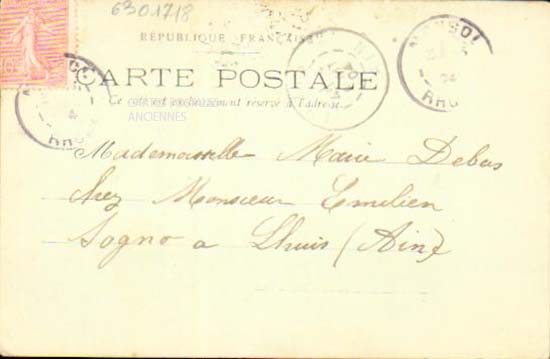 6301718
RÉPUBLIQUE FRANÇAISE
CARTE POSTALE
Ce côté est exclusivement réservé à l'adresse
ANCIENNES
Mademoiselle Marie Debas
chez Monsieur Emilien
Sogno a Lhuis (Ain)